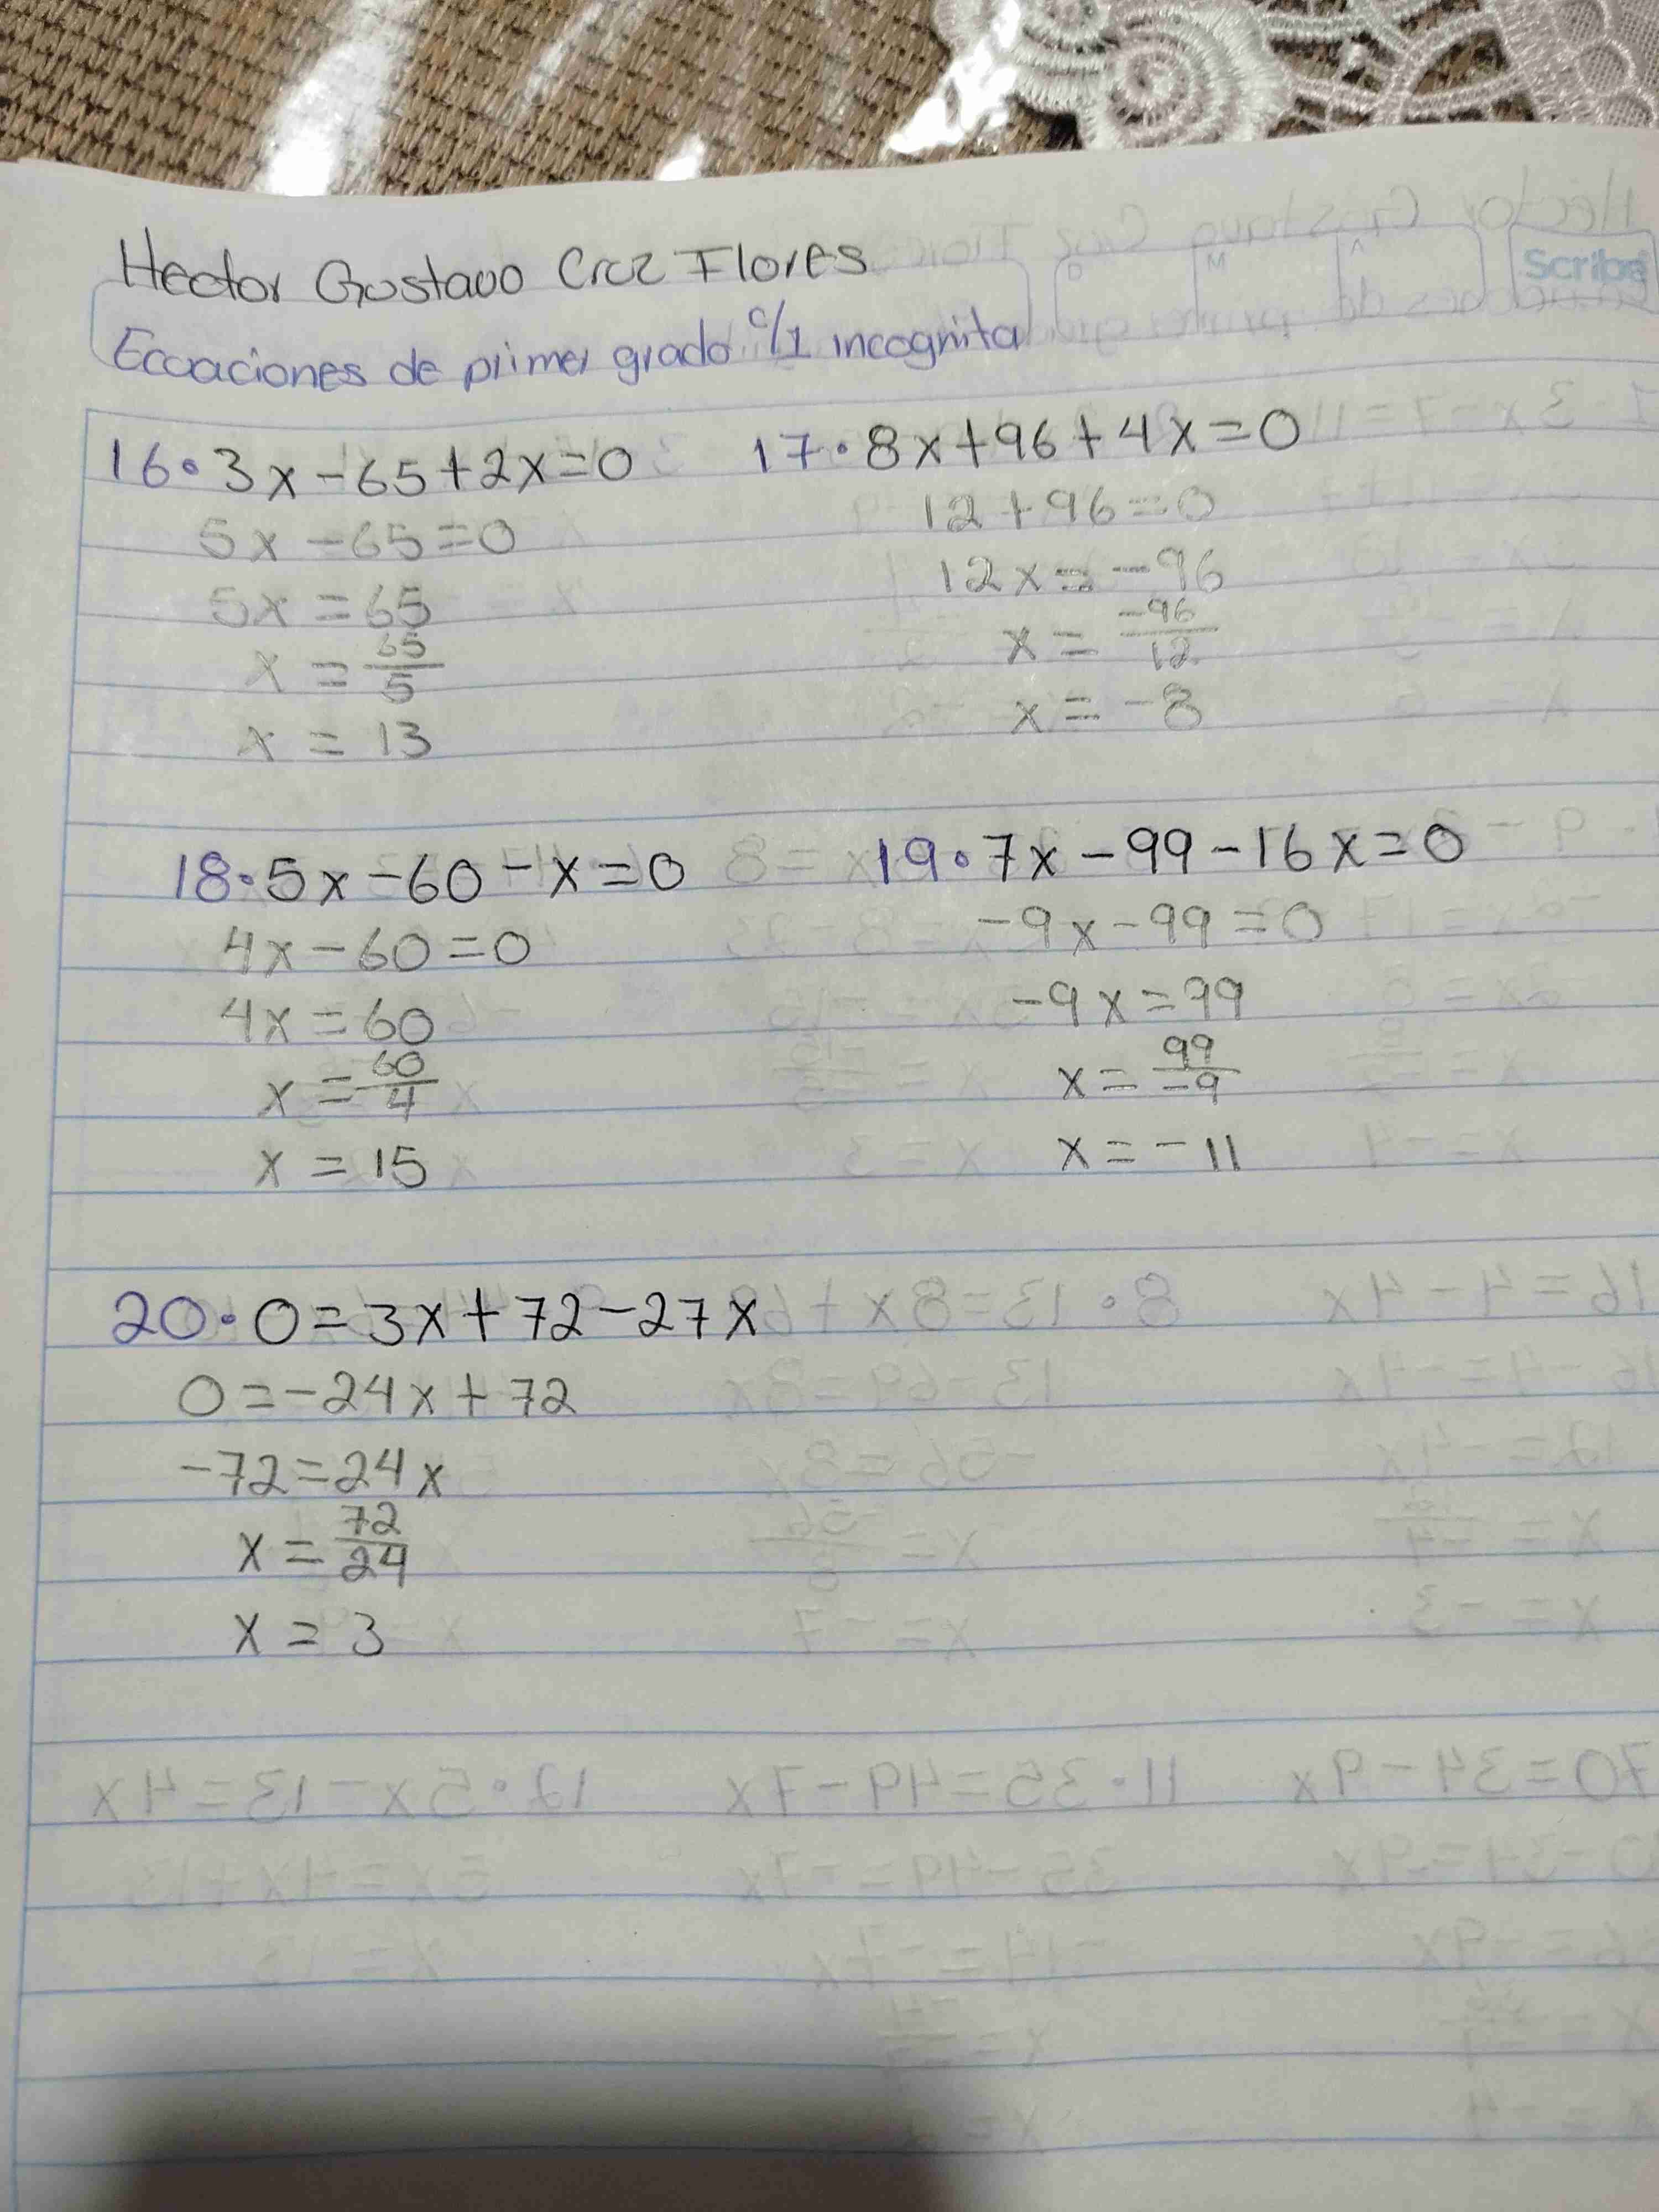 Hector Gustavo Cruz Flores
Scribe
D M A
Ecuaciones de primer grado c/1 incognita
16. 3x-65+2x=0
5x-65=0
5x=65
x=65/5
x=13
17. 8x+96+4x=0
12+96=0
12x=-96
x=-96/12
x=-8
18. 5x-60-x=0
4x-60=0
4x=60
x=60/4
x=15
19. 7x-99-16x=0
-9x-99=0
-9x=99
x=99/-9
x=-11
20. 0=3x+72-27x
0=-24x+72
-72=24x
x=72/24
x=3